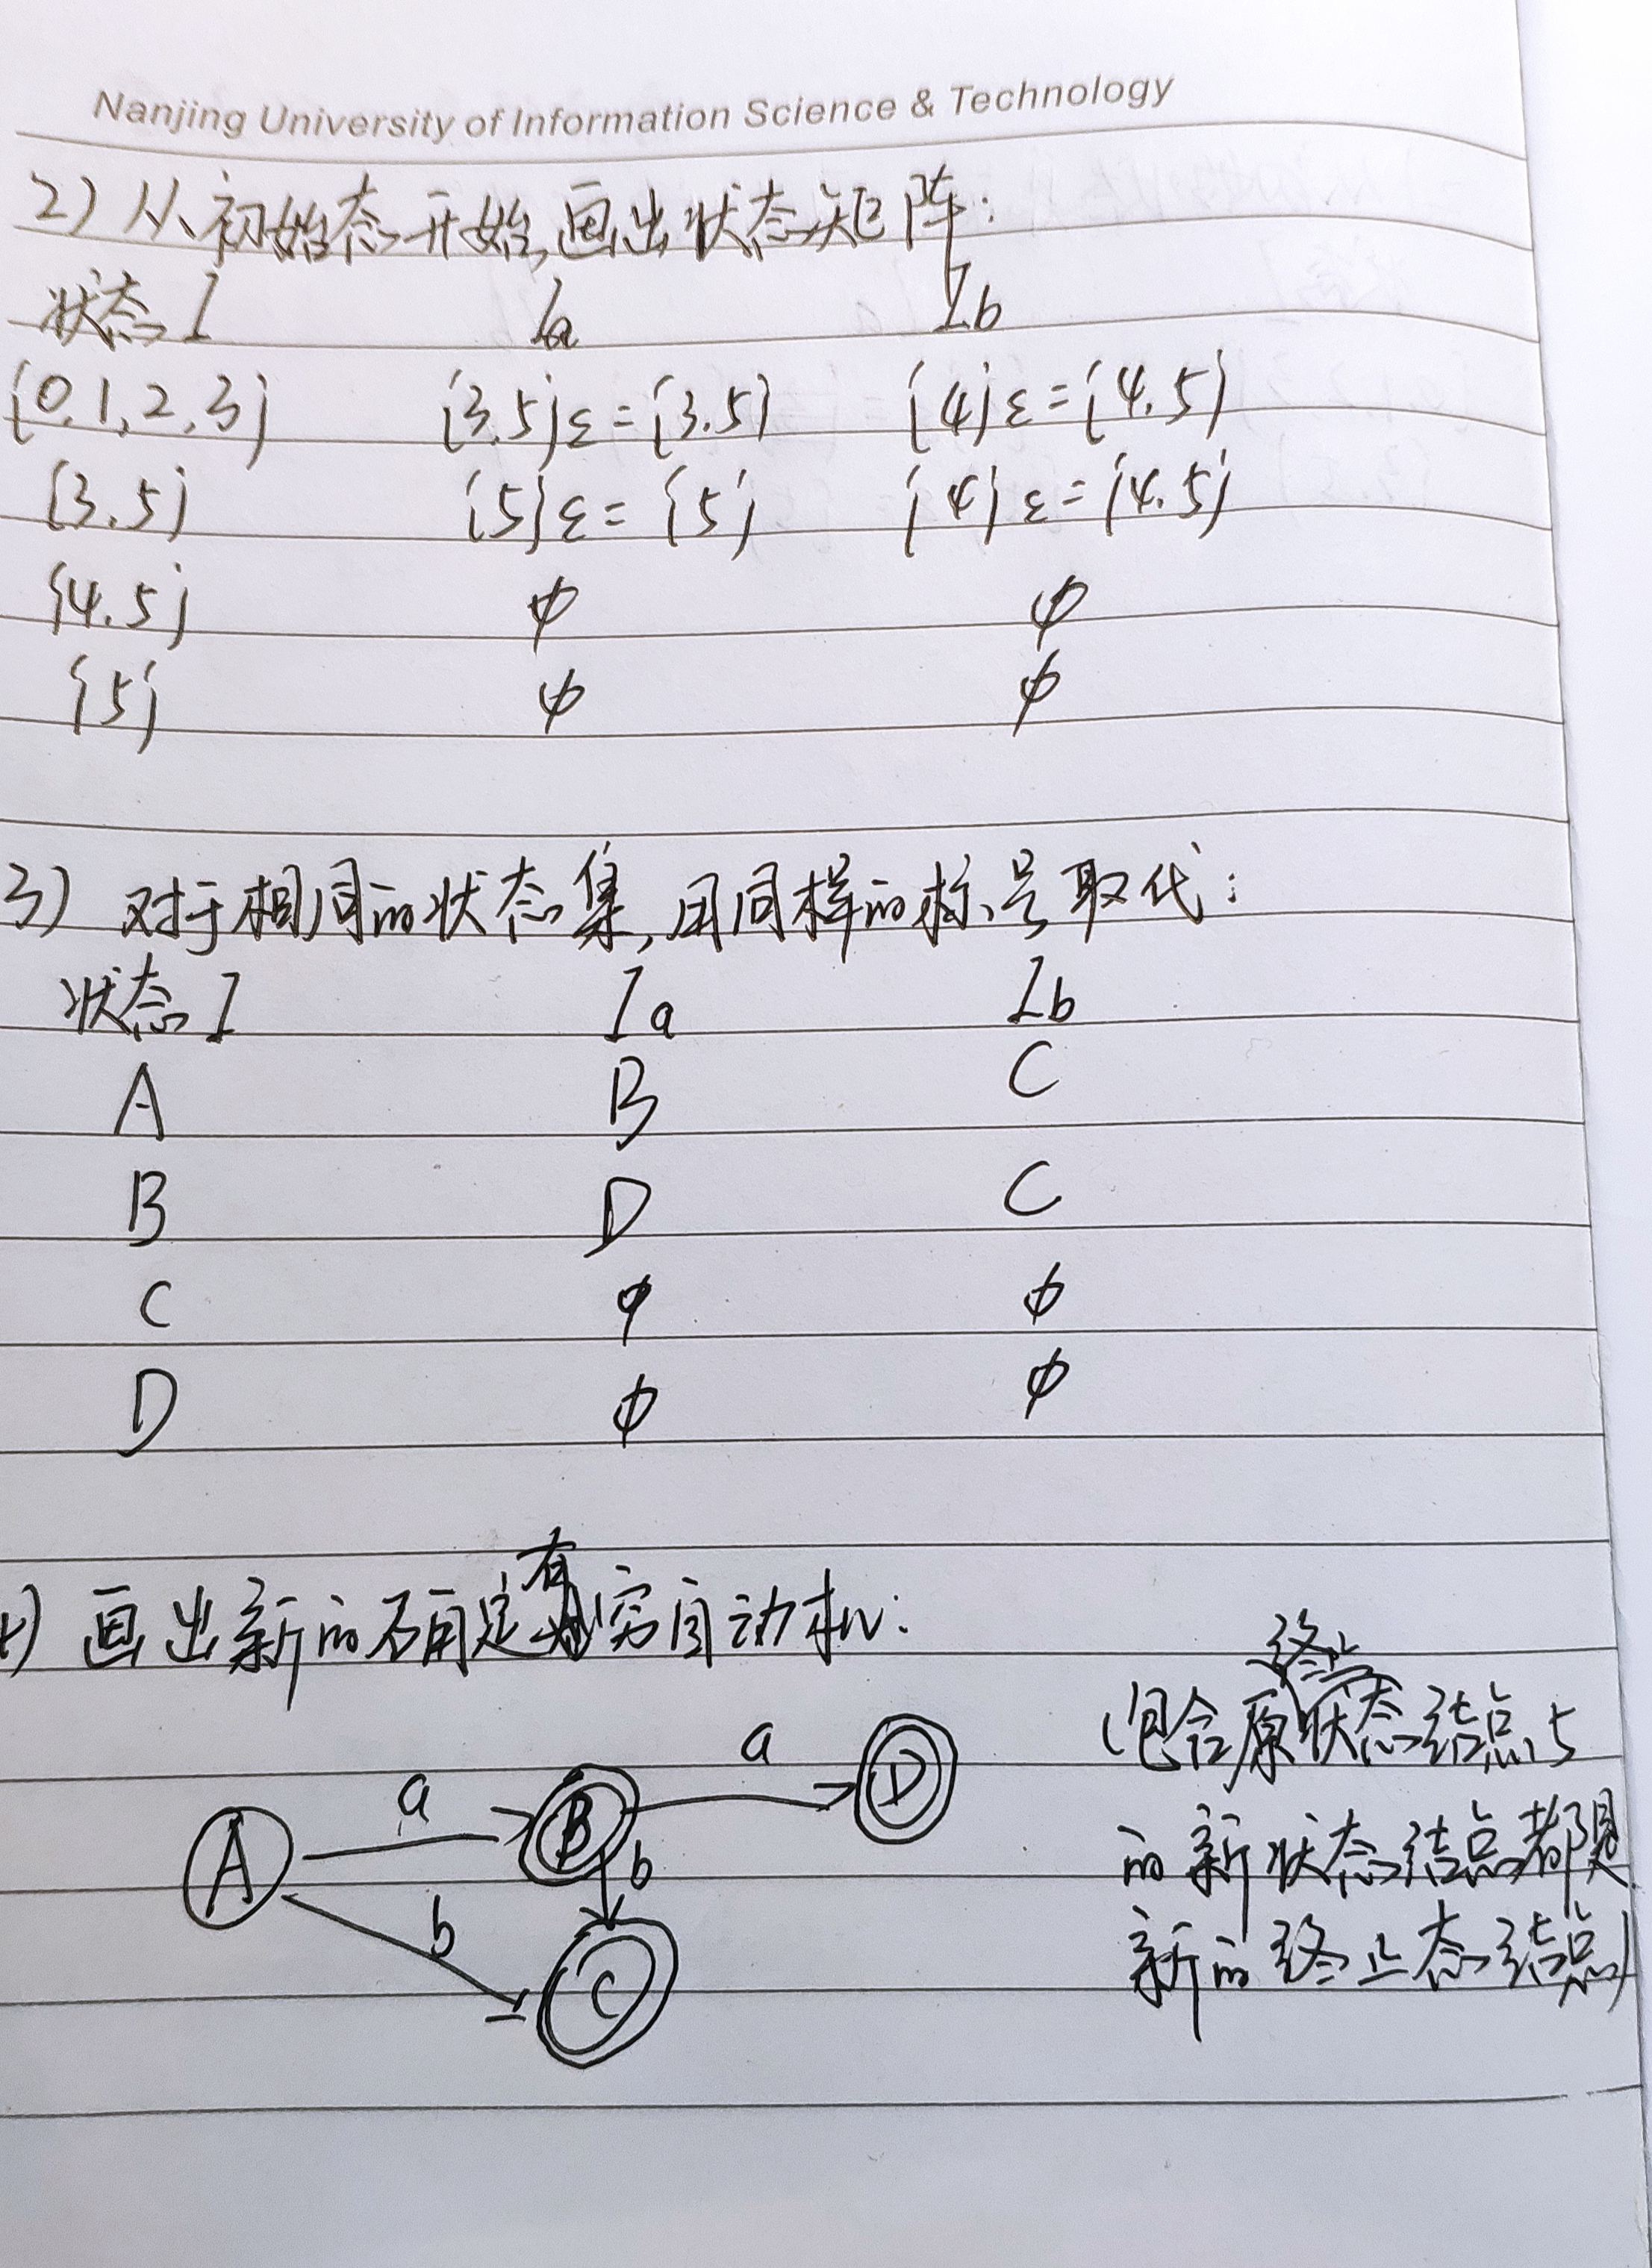 Nanjing University of Information Science & Technology
2) 从初始态开始,画出状态矩阵:
状态I Ia Ib
{0,1,2,3} {3.5}ε={3.5} {4}ε={4.5}
{3.5} {5}ε={5} {4}ε={4.5}
{4.5} φ φ
{5} φ φ
3) 对于相同的状态集,用同样的标号取代:
状态I Ia Ib
A B C
B D C
C φ φ
D φ φ
画出新的确定有穷自动机:
(包含原终止状态结点5
的新状态结点都是
新的终止态结点)
a D
a B
A b
b
C